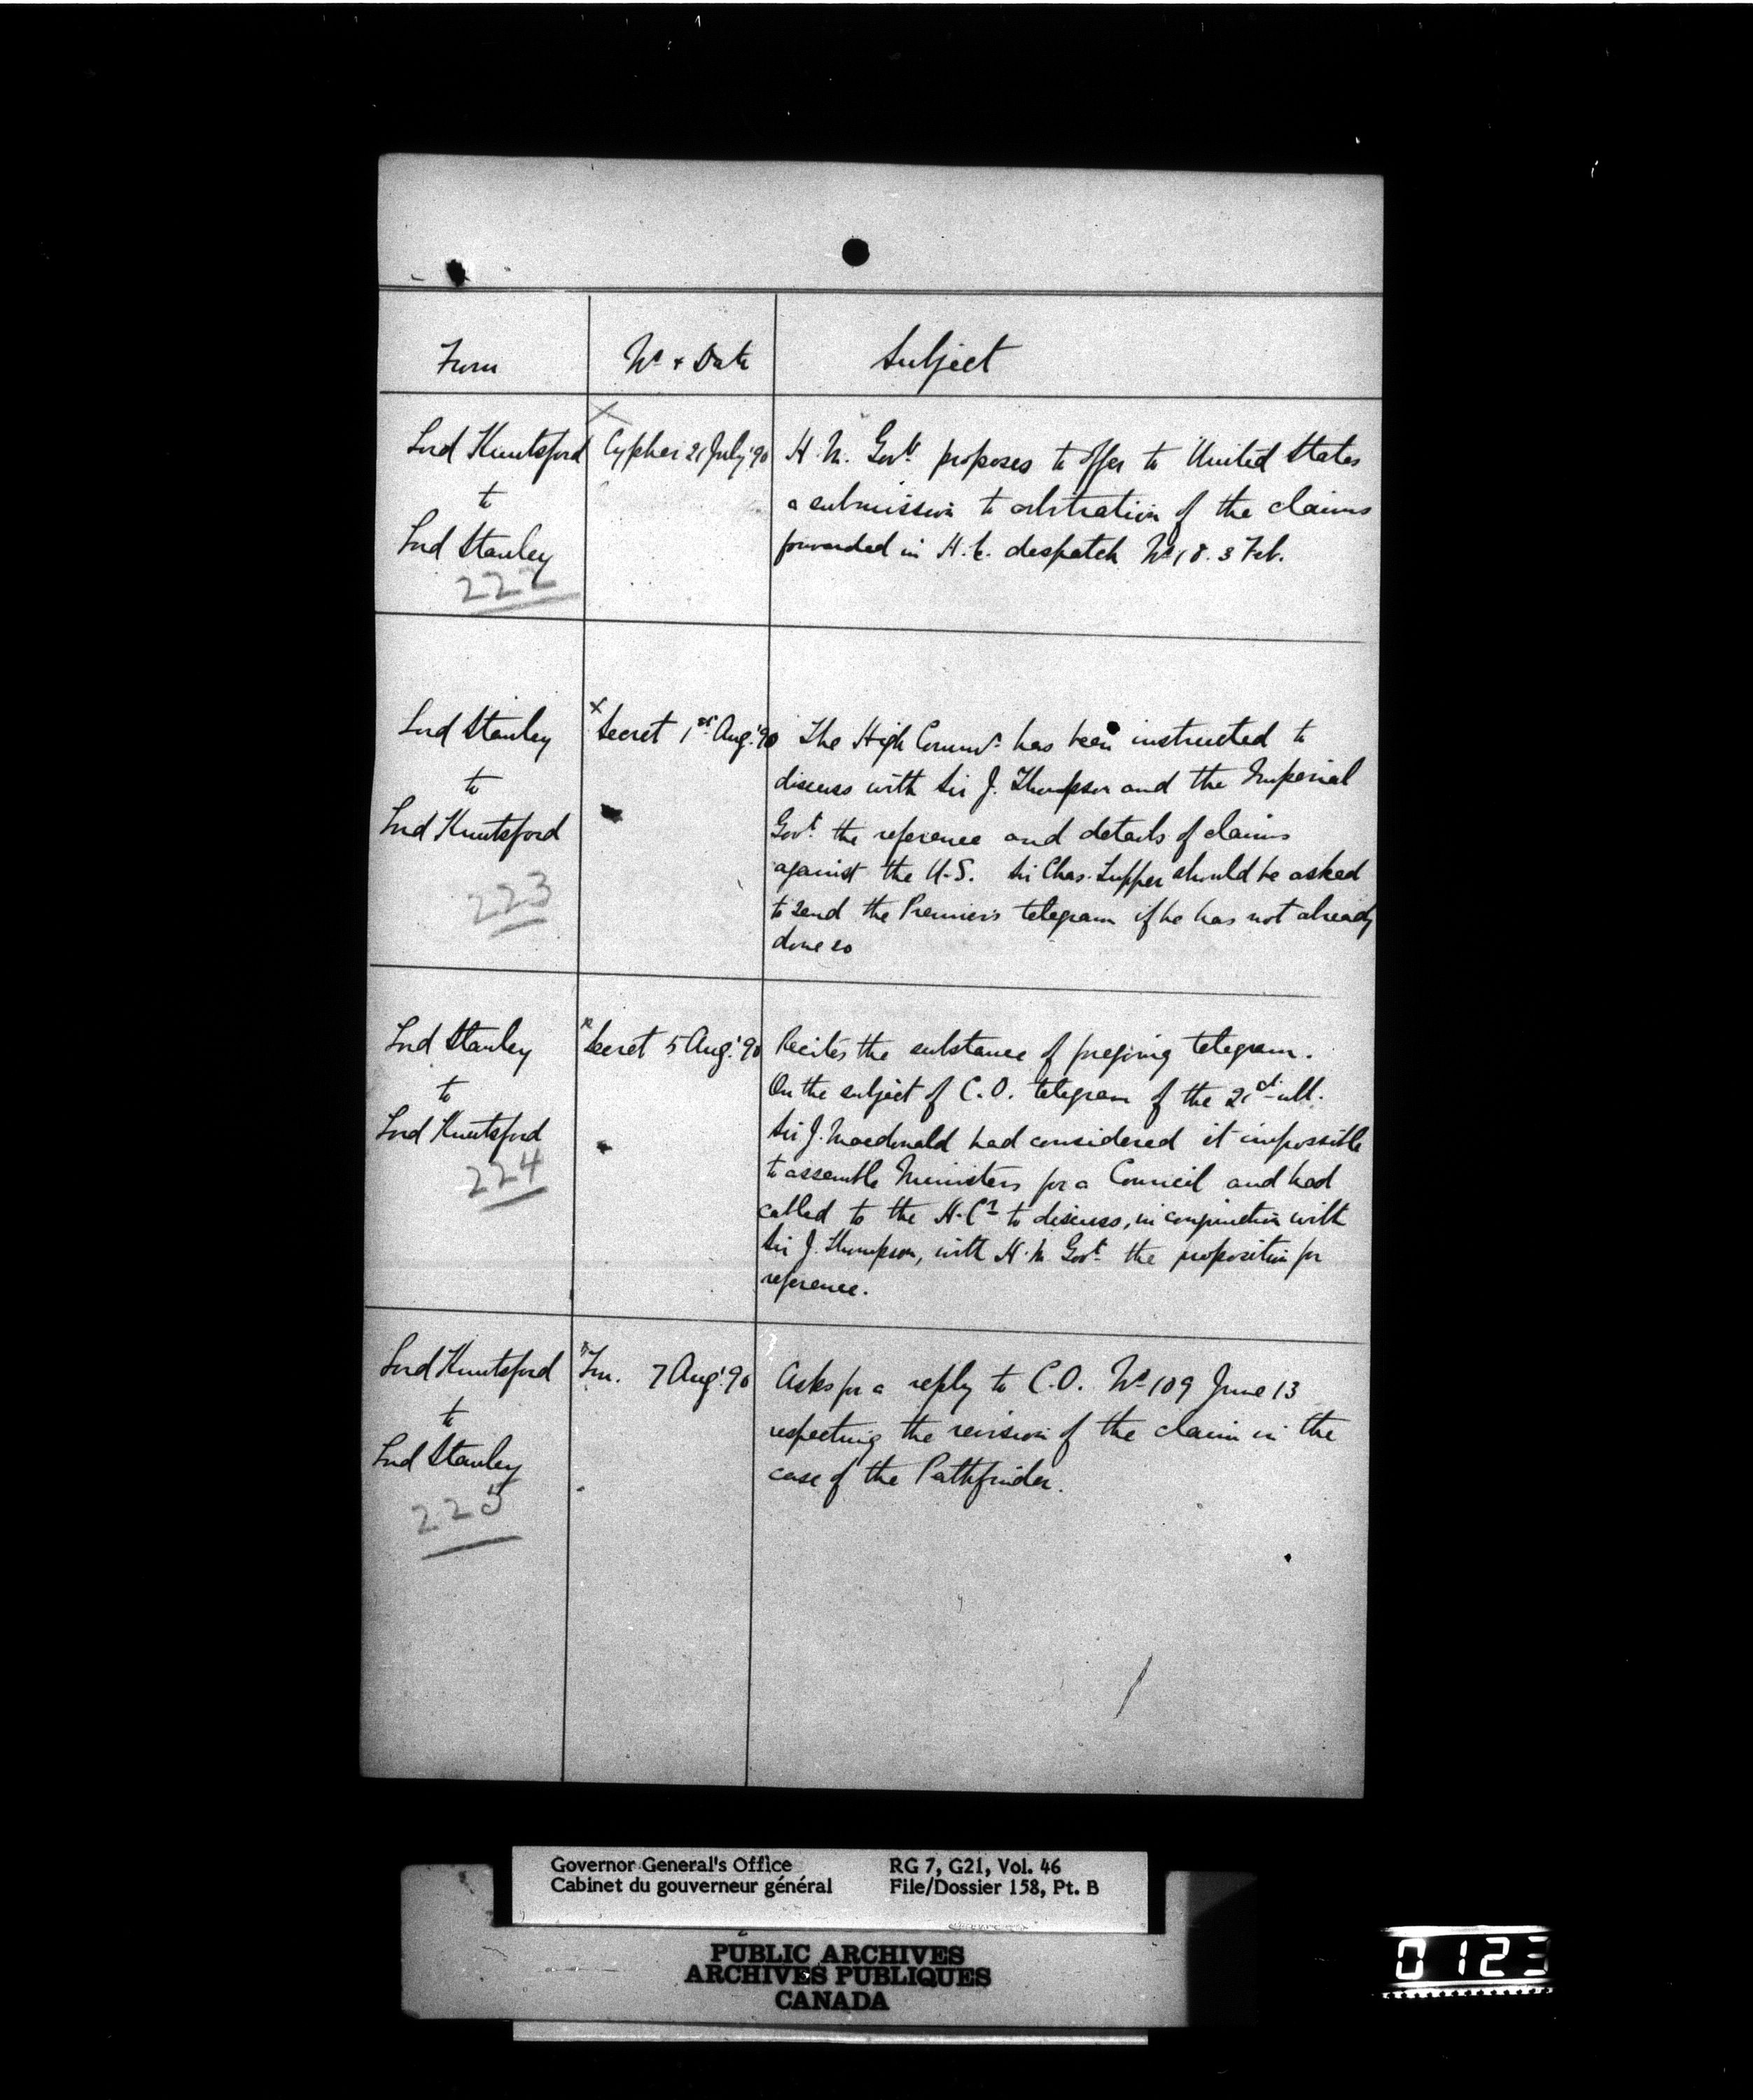 From
No & Date
Subject
Lord Knutsford
to
Lord Stanley
222
x
Cypher 21 July '90
H. M. Govt. proposes to offer to United States
a submission to arbitration of the claims
forwarded in H. E. despatch No 18. 3 Feb.
Lord Stanley
to
Lord Knutsford
223
x
Secret 1st Aug. '90
The High Commr. has been instructed to
discuss with Sir J. Thompson and the Imperial
Govt. the reference and details of claims
against the U.S. Sir Chas. Tupper should be asked
to send the Premier's telegram if he has not already
done so
Lord Stanley
to
Lord Knutsford
224
x
Secret 5 Aug. '90
Recites the substance of foregoing telegram.
On the subject of C. O. telegram of the 21st ult.
Sir J. Macdonald had considered it impossible
to assemble Ministers for a Council and had
cabled to the H. Cr to discuss, in conjunction with
Sir J. Thompson, with H. M. Govt. the proposition for
reference.
Lord Knutsford
to
Lord Stanley
225
x
7 Aug. '90
Asks for a reply to C.O. No 109 June 13
respecting the revision of the claim in the
case of the Pathfinder.
Governor General's Office
Cabinet du gouverneur général
RG 7, G21, Vol. 46
File/Dossier 158, Pt. B
PUBLIC ARCHIVES
ARCHIVES PUBLIQUES
CANADA
0123